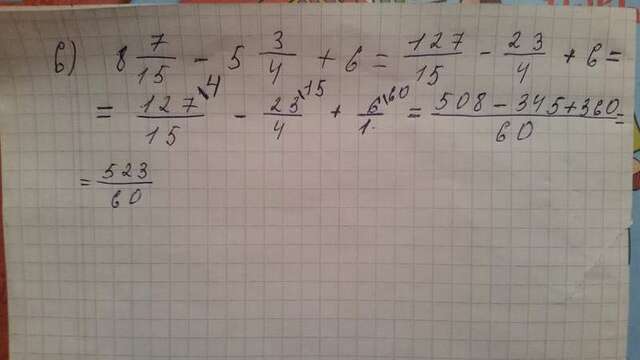 б) 8 7/15 - 5 3/4 + 6 = 127/15 - 23/4 + 6 =
= 127\4/15 - 23\15/4 + 6\60/1 = 508 - 345 + 360/60 =
= 523/60